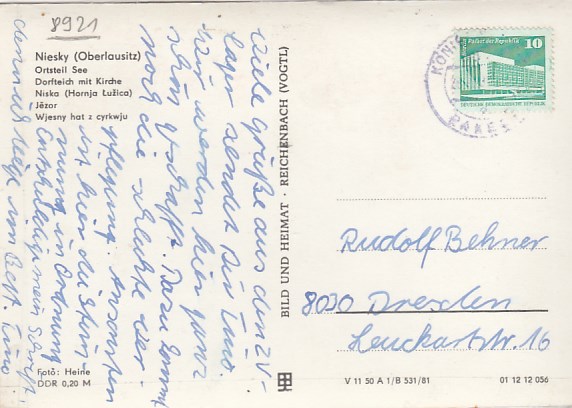 8921
Niesky (Oberlausitz)
Ortsteil See
Dorfteich mit Kirche
Niska (Hornja Łužica)
Jězor
Wjesny hat z cyrkwju
Viele Grüße aus dem ZV-
lager sendet Dir Timo.
Wir werden hier ganz
schön geschafft. Dazu kommt
noch die schlechte Ver-
pflegung. Ansonsten
ist hier die Stim
mung in Ordnung
Entschuldige mein
denn ich liege im Bett. Timo
Foto: Heine
DDR 0,20 M
BILD UND HEIMAT · REICHENBACH (VOGTL)
V 11 50 A 1/B 531/81
01 12 12 056
Palast der Republik
10
DEUTSCHE DEMOKRATISCHE REPUBLIK
Rudolf Behner
8030 Dresden
Leuckartstr. 16